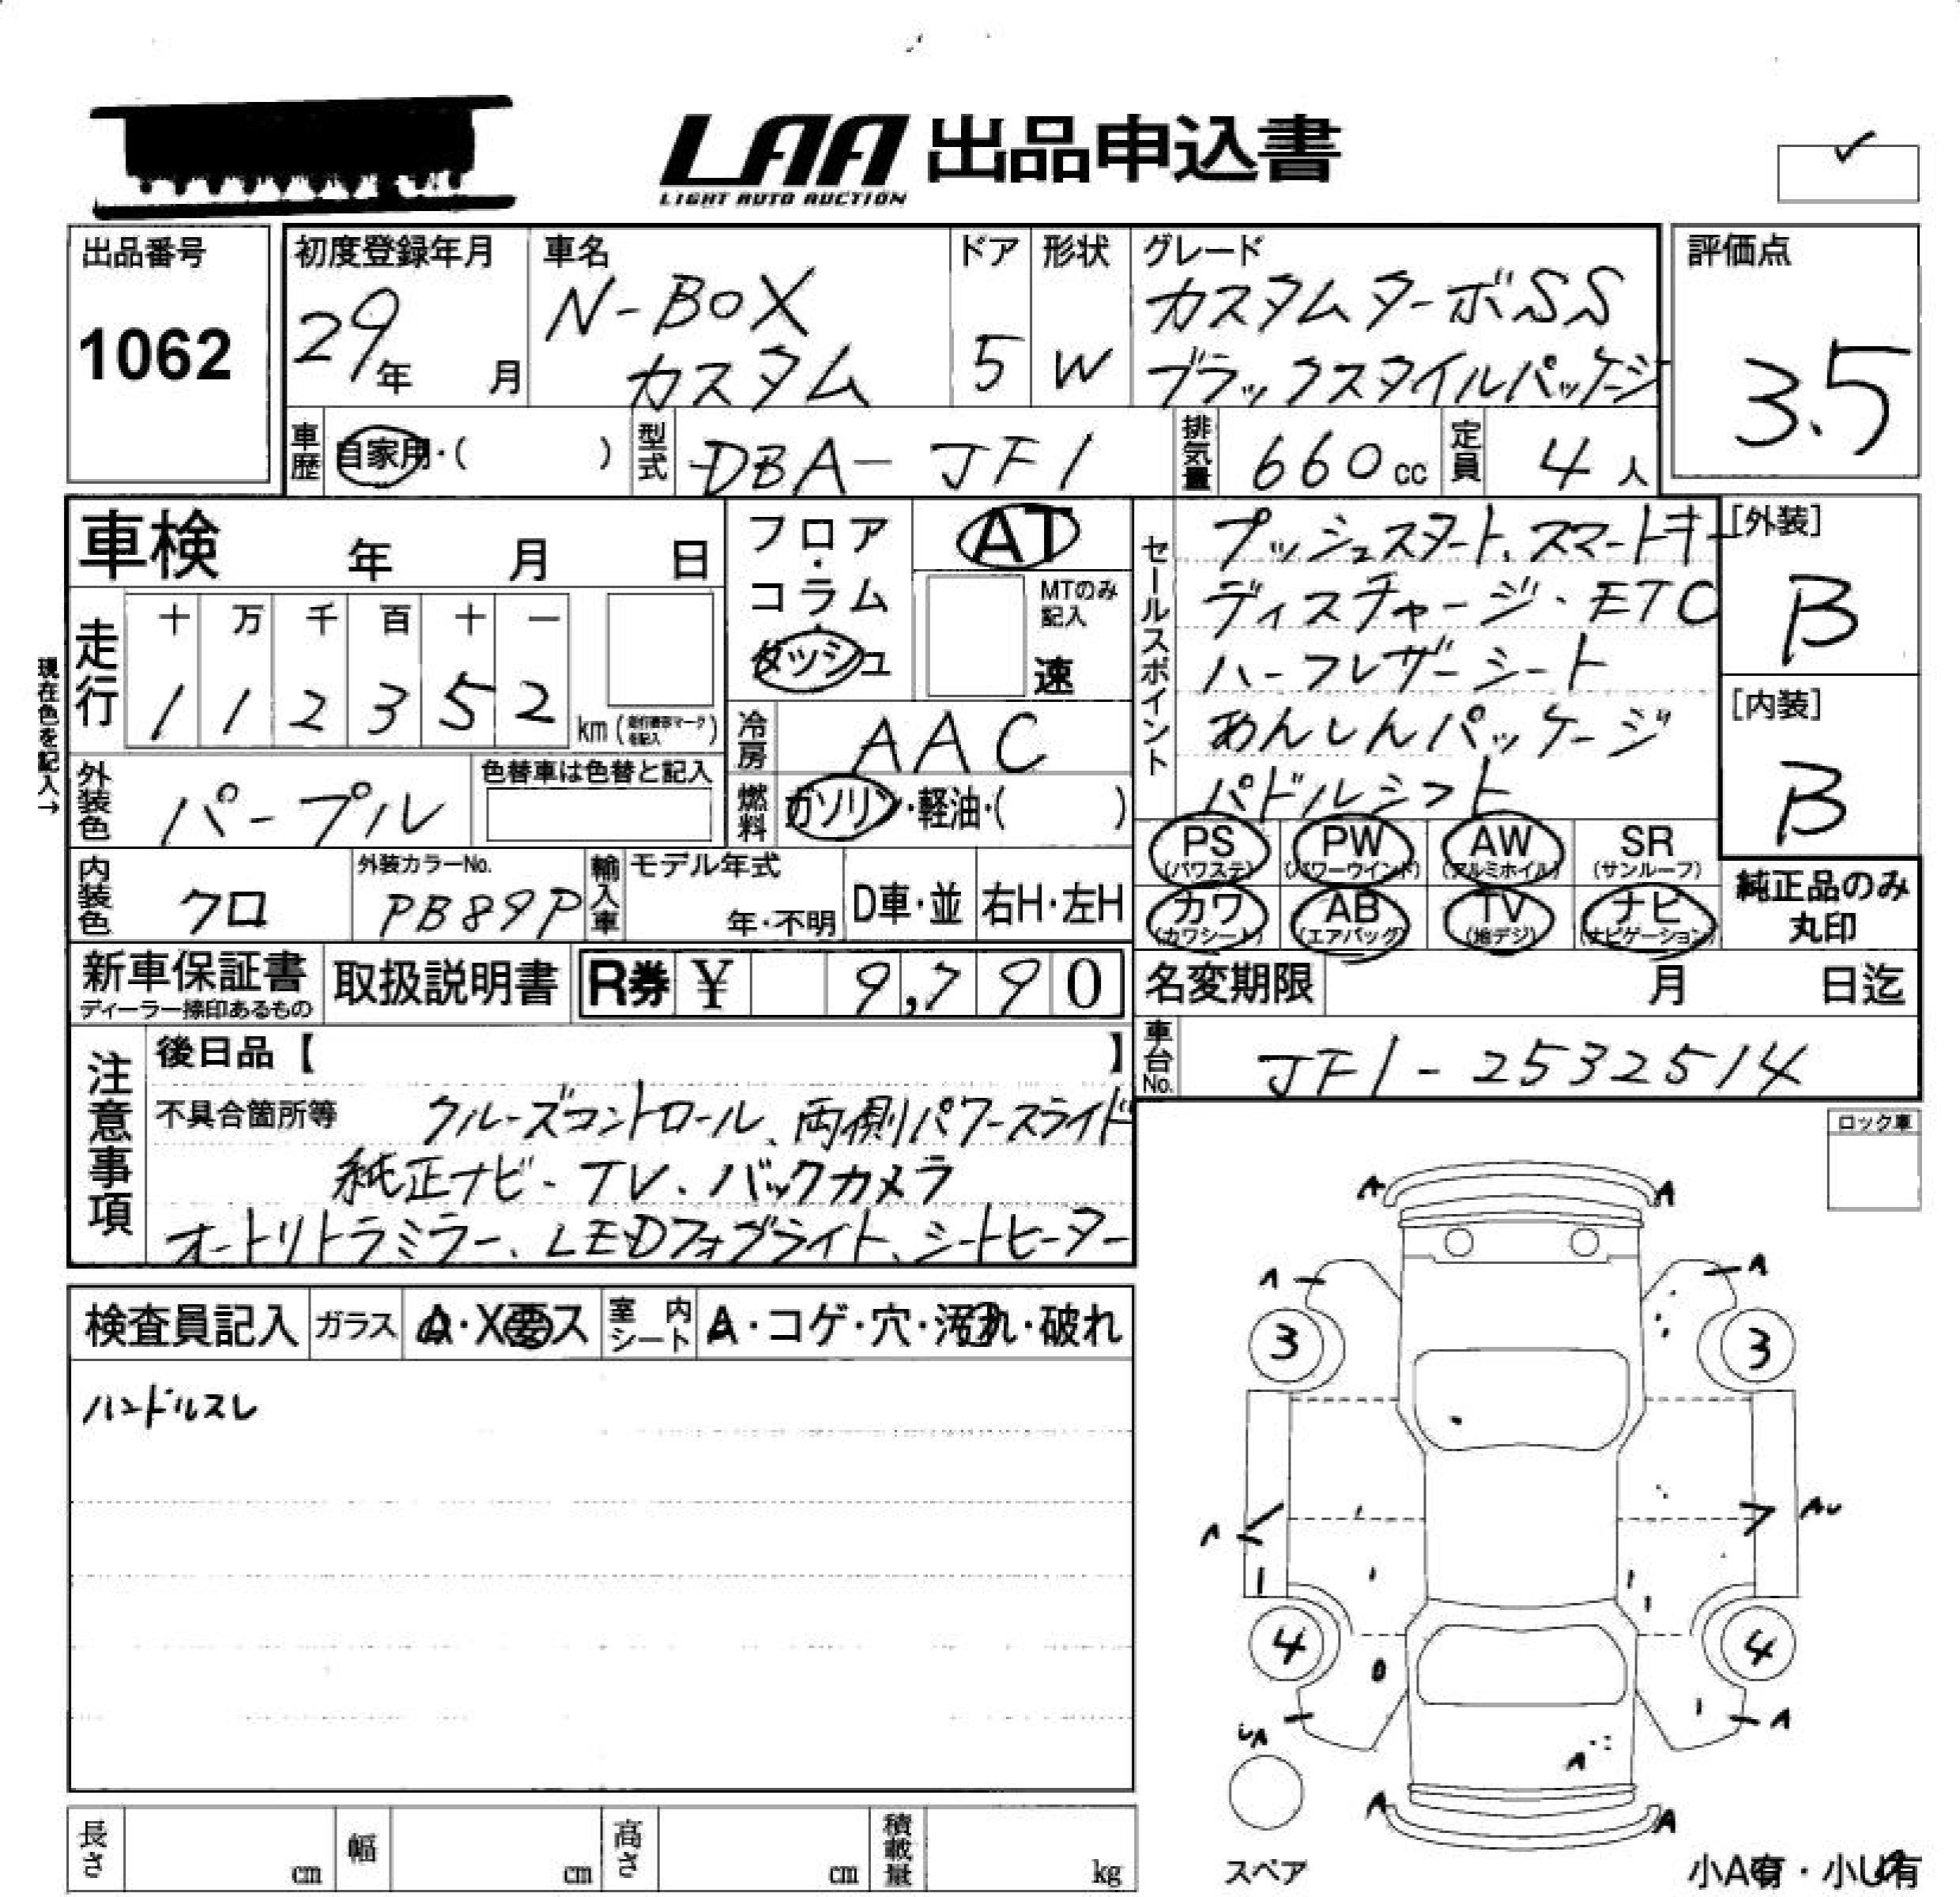 LAA 出品申込書
LIGHT AUTO AUCTION
出品番号
1062
初度登録年月
29年 月
車名
N-BOX
カスタム
ドア
5
形状
W
グレード
カスタムターボSS
ブラックスタイルパッケージ
評価点
3.5
車歴
自家用・( )
型式
DBA-JF1
排気量
660cc
定員
4人
車検 年 月 日
走行
十 万 千 百 十 一
1 1 2 3 5 2 km
現在色を記入→
外装色
パープル
色替車は色替と記入
内装色
クロ
外装カラーNo.
PB89P
輸入車
モデル年式
年・不明
D車・並
右H・左H
フロア・
コラム・
ダッシュ
AT
MTのみ
記入
速
冷房
AAC
燃料
ガソリン・軽油・( )
セールスポイント
プッシュスタート、スマートキー
ディスチャージ・ETC
ハーフレザーシート
あんしんパッケージ
パドルシフト
[外装]
B
[内装]
B
PS
(パワステ)
PW
(パワーウインド)
AW
(アルミホイル)
SR
(サンルーフ)
カワ
(カワシート)
AB
(エアバッグ)
TV
(地デジ)
ナビ
(ナビゲーション)
純正品のみ
丸印
新車保証書
ディーラー捺印あるもの
取扱説明書
R券 ¥ 9,790
名変期限 月 日迄
車台No.
JF1-2532514
注意事項
後日品【 】
不具合箇所等 クルーズコントロール、両側パワースライド
純正ナビ・TV・バックカメラ
オートリトラミラー、LEDフォグライト、シートヒーター
ロック車
検査員記入
ガラス
A・X要ス
室内シート
A・コゲ・穴・汚れ・破れ
ハンドルスレ
A A
A A
3 3
A AU
4 4
UA A
A
A A
スペア
小A有・小U有
長さ cm
幅 cm
高さ cm
積載量 kg